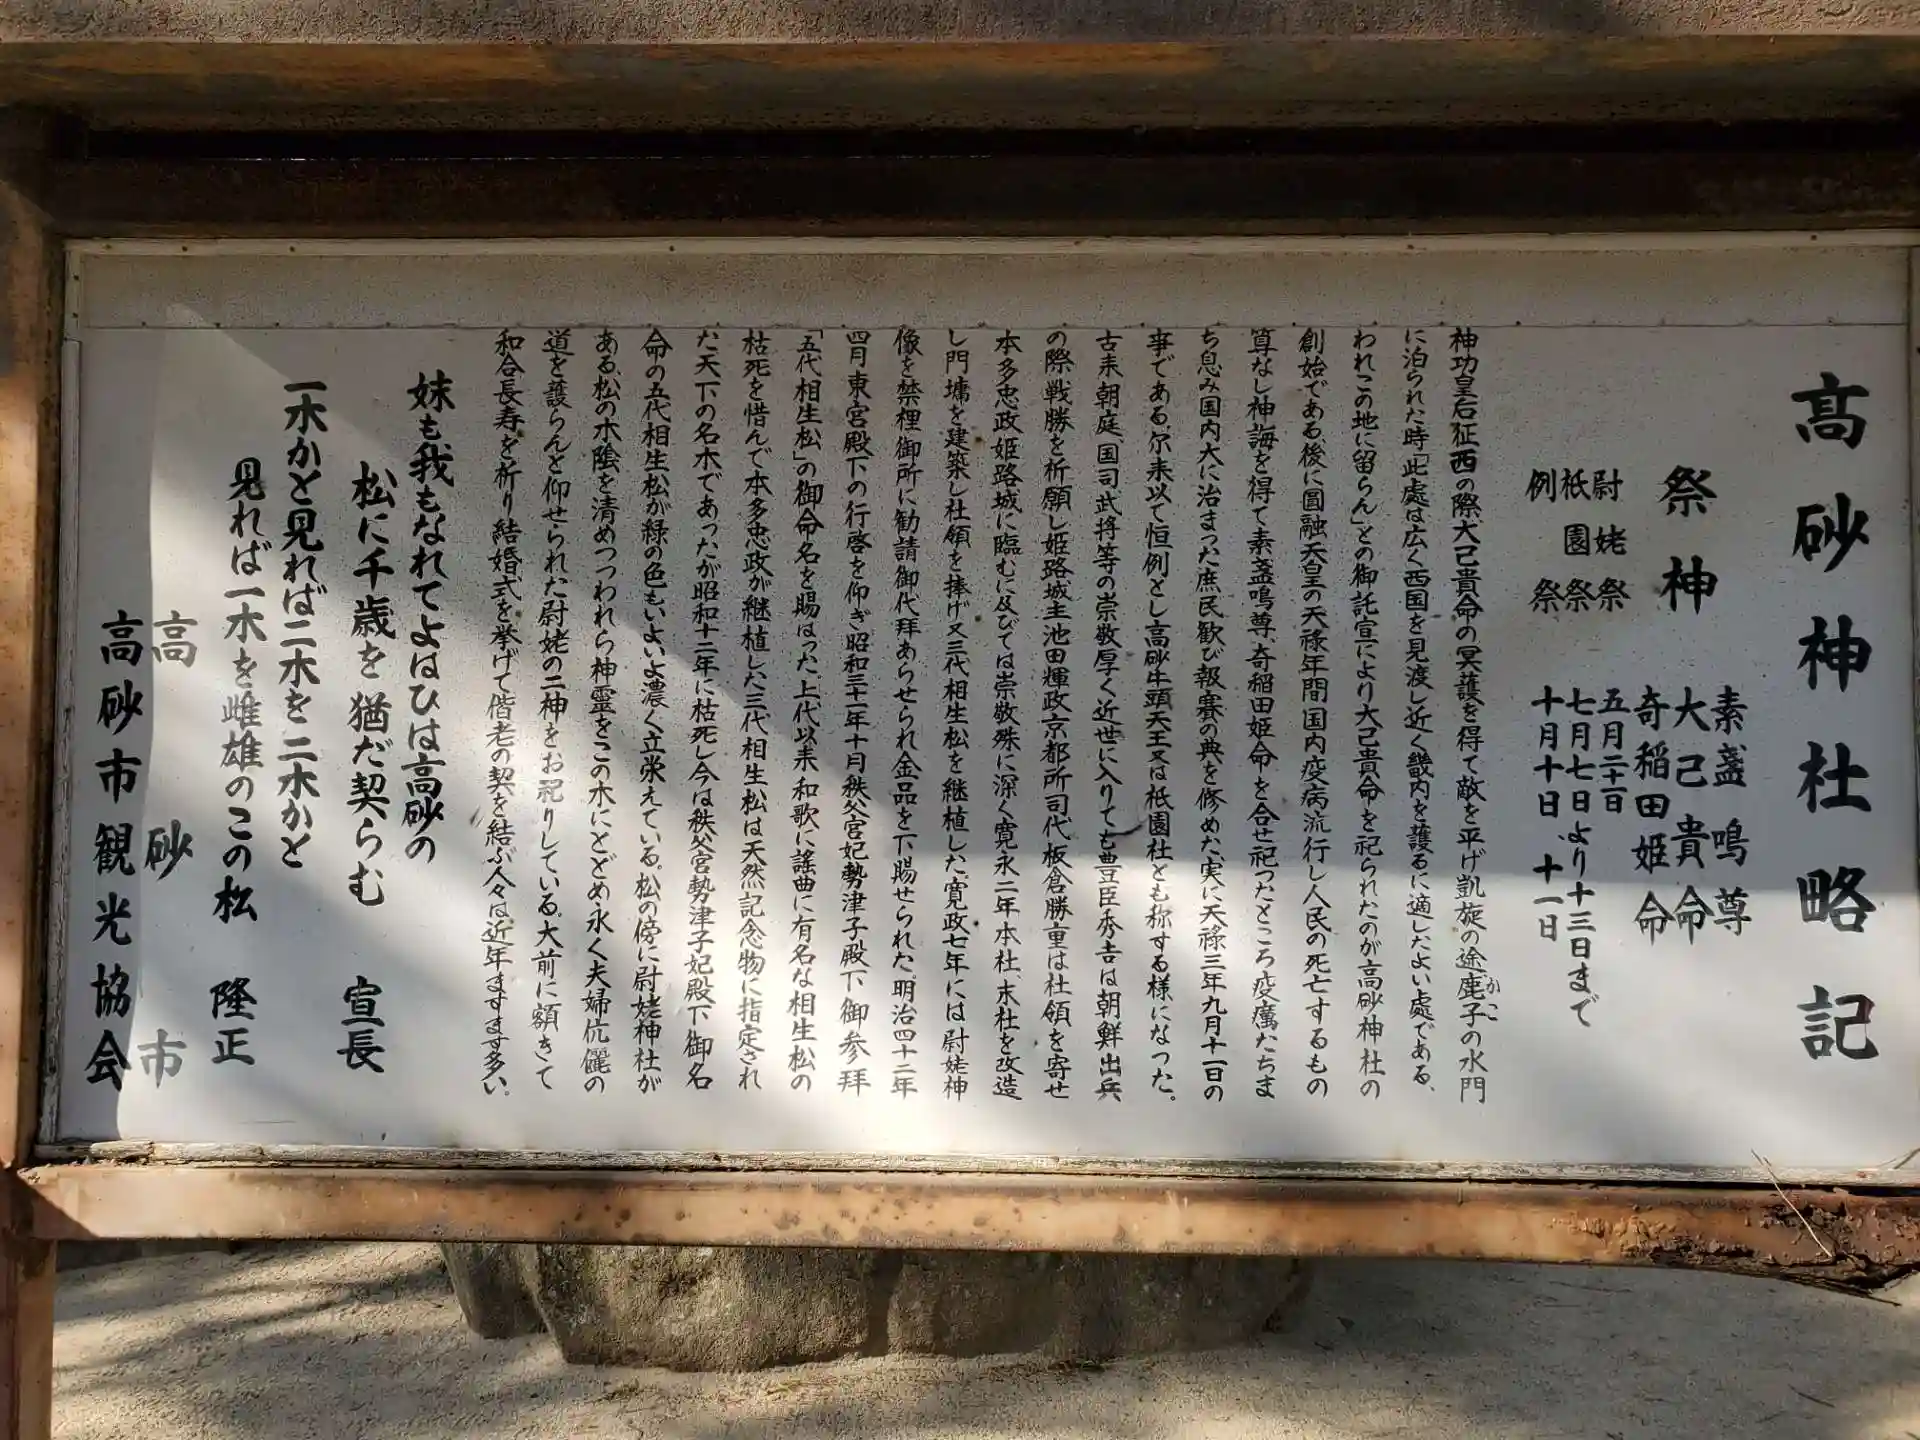 高砂神社略記
祭神
素盞鳴尊
大己貴命
奇稲田姫命
尉姥祭 五月二十一日
祇園祭 七月七日より十三日まで
例祭 十月十日、十一日
神功皇后征西の際、大己貴命の冥護を得て敵を平げ凱旋の途鹿子の水門
かこ
に泊られた時「此處は広く西国を見渡し近く畿内を護るに適したよい處である、
われこの地に留らん」との御託宣により大己貴命を祀られたのが高砂神社の
創始である、後に圓融天皇の天祿年間国内疫病流行し人民の死亡するもの
算なし神誨を得て素盞鳴尊、奇稲田姫命を合せ祀つたところ疫癘たちま
ち息み国内大に治まった庶民歓び報賽の典を修めた、実に天祿三年九月十一日の
事である、尓来以て恒例とし高砂牛頭天王又は祇園社とも称する様になつた。
古来朝庭、国司武将等の崇敬厚く近世に入りても豊臣秀吉は朝鮮出兵
の際戦勝を祈願し姫路城主池田輝政京都所司代板倉勝重は社領を寄せ
本多忠政姫路城に臨むに及びては崇敬殊に深く寛永二年本社、末社を改造
し門墉を建築し社領を捧げ又三代相生松を継植した。寛政七年には尉姥神
像を禁裡御所に勧請御代拜あらせられ金品を下賜せられた。明治四十二年
四月東宮殿下の行啓を仰ぎ昭和三十一年十月秩父宮妃勢津子殿下御参拜
「五代相生松」の御命名を賜はつた上代以来和歌に謡曲に有名な相生松の
枯死を惜んで本多忠政が継植した三代相生松は天然記念物に指定され
た天下の名木であつたが昭和十二年に枯死し今は秩父宮勢津子妃殿下御名
命の五代相生松が緑の色もいよいよ濃く立栄えている。松の傍に尉姥神社が
ある、松の木陰を清めつつわれら神靈をこの木にとどめ永く夫婦伉儷の
道を護らんと仰せられた尉姥の二神をお祀りしている。大前に額きて
和合長寿を祈り結婚式を挙げて偕老の契を結ぶ人々は近年ますます多い。
妹も我もなれてよはひは高砂の
松に千歳を猶だ契らむ 宣長
一木かと見れば二木を二木かと
見れば一木を雌雄のこの松 隆正
高砂市
高砂市観光協会